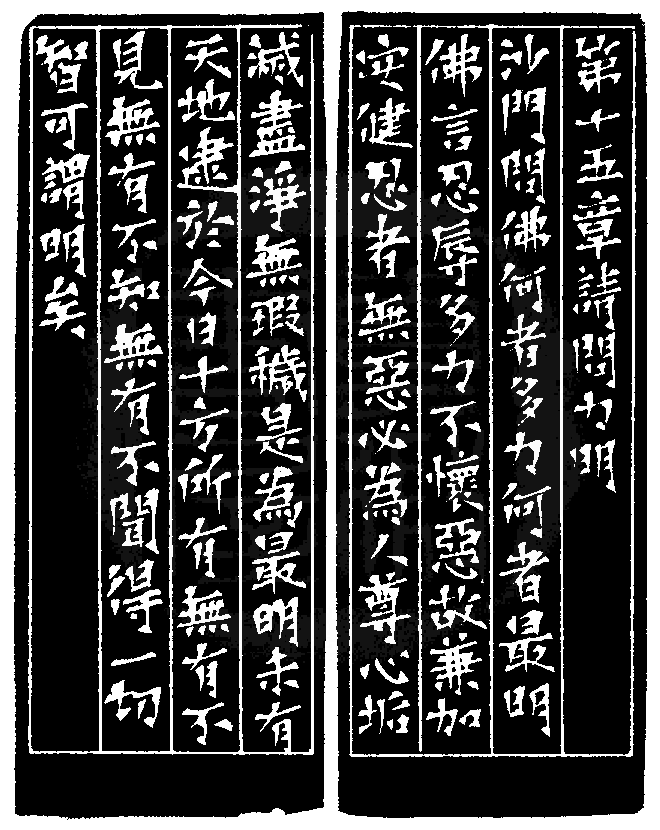 第十五章請問力明
沙門問佛何者多力何者最明
佛言忍辱多力不懷惡故兼加
安健忍者無惡必為人尊心垢
滅盡淨無瑕穢是為最明未有
天地逮於今日十方所有無有不
見無有不知無有不聞得一切
智可謂明矣